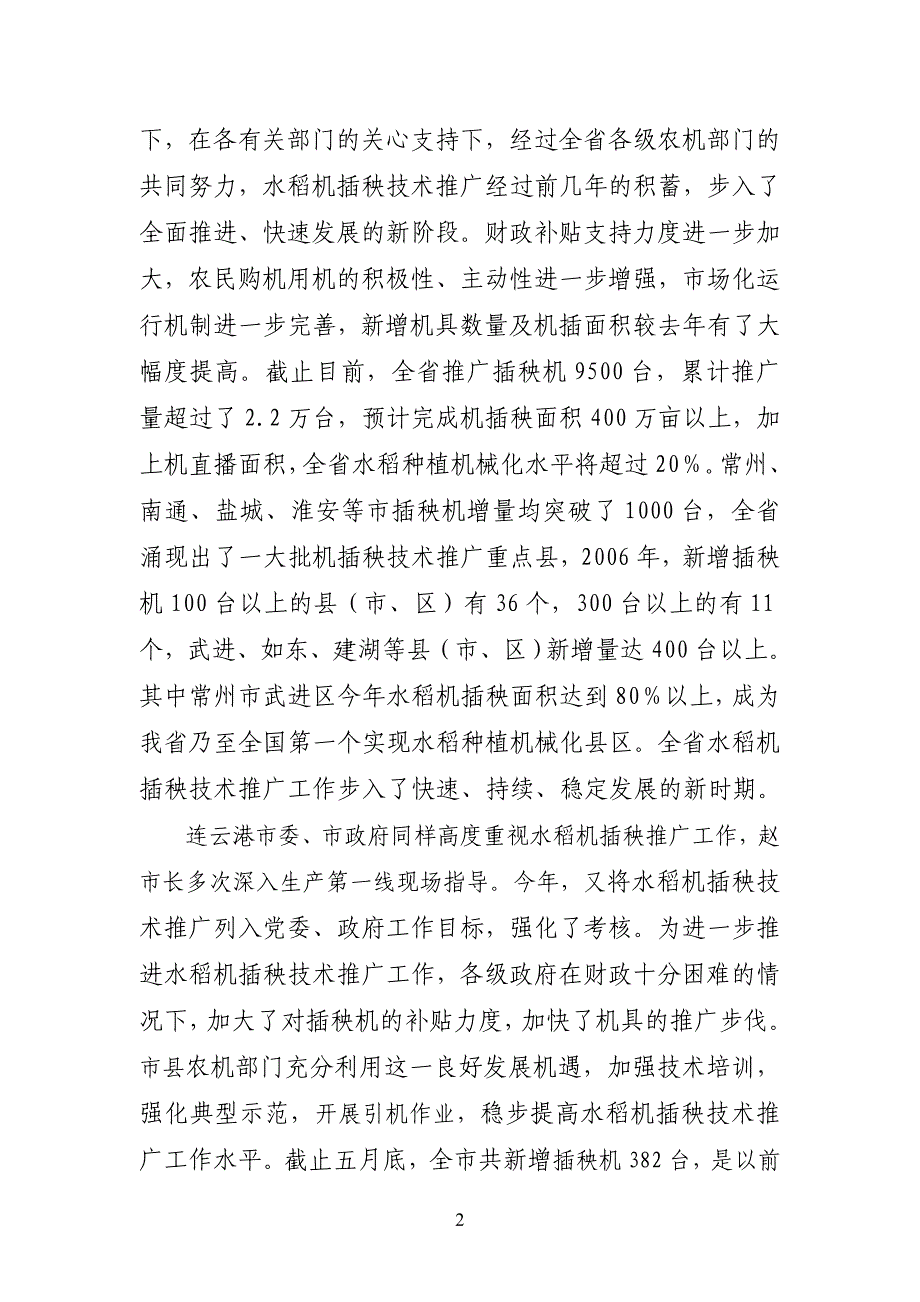 下，在各有关部门的关心支持下，经过全省各级农机部门的
共同努力，水稻机插秧技术推广经过前几年的积蓄，步入了
全面推进、快速发展的新阶段。财政补贴支持力度进一步加
大，农民购机用机的积极性、主动性进一步增强，市场化运
行机制进一步完善，新增机具数量及机插面积较去年有了大
幅度提高。截止目前，全省推广插秧机 9500 台，累计推广
量超过了 2.2 万台，预计完成机插秧面积 400 万亩以上，加
上机直播面积，全省水稻种植机械化水平将超过 20%。常州、
南通、盐城、淮安等市插秧机增量均突破了 1000 台，全省
涌现出了一大批机插秧技术推广重点县，2006 年，新增插秧
机 100 台以上的县（市、区）有 36 个，300 台以上的有 11
个，武进、如东、建湖等县（市、区）新增量达 400 台以上。
其中常州市武进区今年水稻机插秧面积达到 80%以上，成为
我省乃至全国第一个实现水稻种植机械化县区。全省水稻机
插秧技术推广工作步入了快速、持续、稳定发展的新时期。
连云港市委、市政府同样高度重视水稻机插秧推广工作，赵
市长多次深入生产第一线现场指导。今年，又将水稻机插秧技
术推广列入党委、政府工作目标，强化了考核。为进一步推
进水稻机插秧技术推广工作，各级政府在财政十分困难的情
况下，加大了对插秧机的补贴力度，加快了机具的推广步伐。
市县农机部门充分利用这一良好发展机遇，加强技术培训，
强化典型示范，开展引机作业，稳步提高水稻机插秧技术推
广工作水平。截止五月底，全市共新增插秧机 382 台，是以前
2